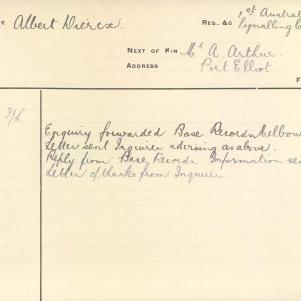 Albert Diercx
REG. &C 1st Austral
Signalling C
NEXT OF KIN Mr A. Arthur.
ADDRESS Port Elliot.
F
Enquiry forwarded Base Records Melbou
Letter sent Inquirer advising as above.
Reply from Base Records. Information sen
Letter of thanks from Inquirer.